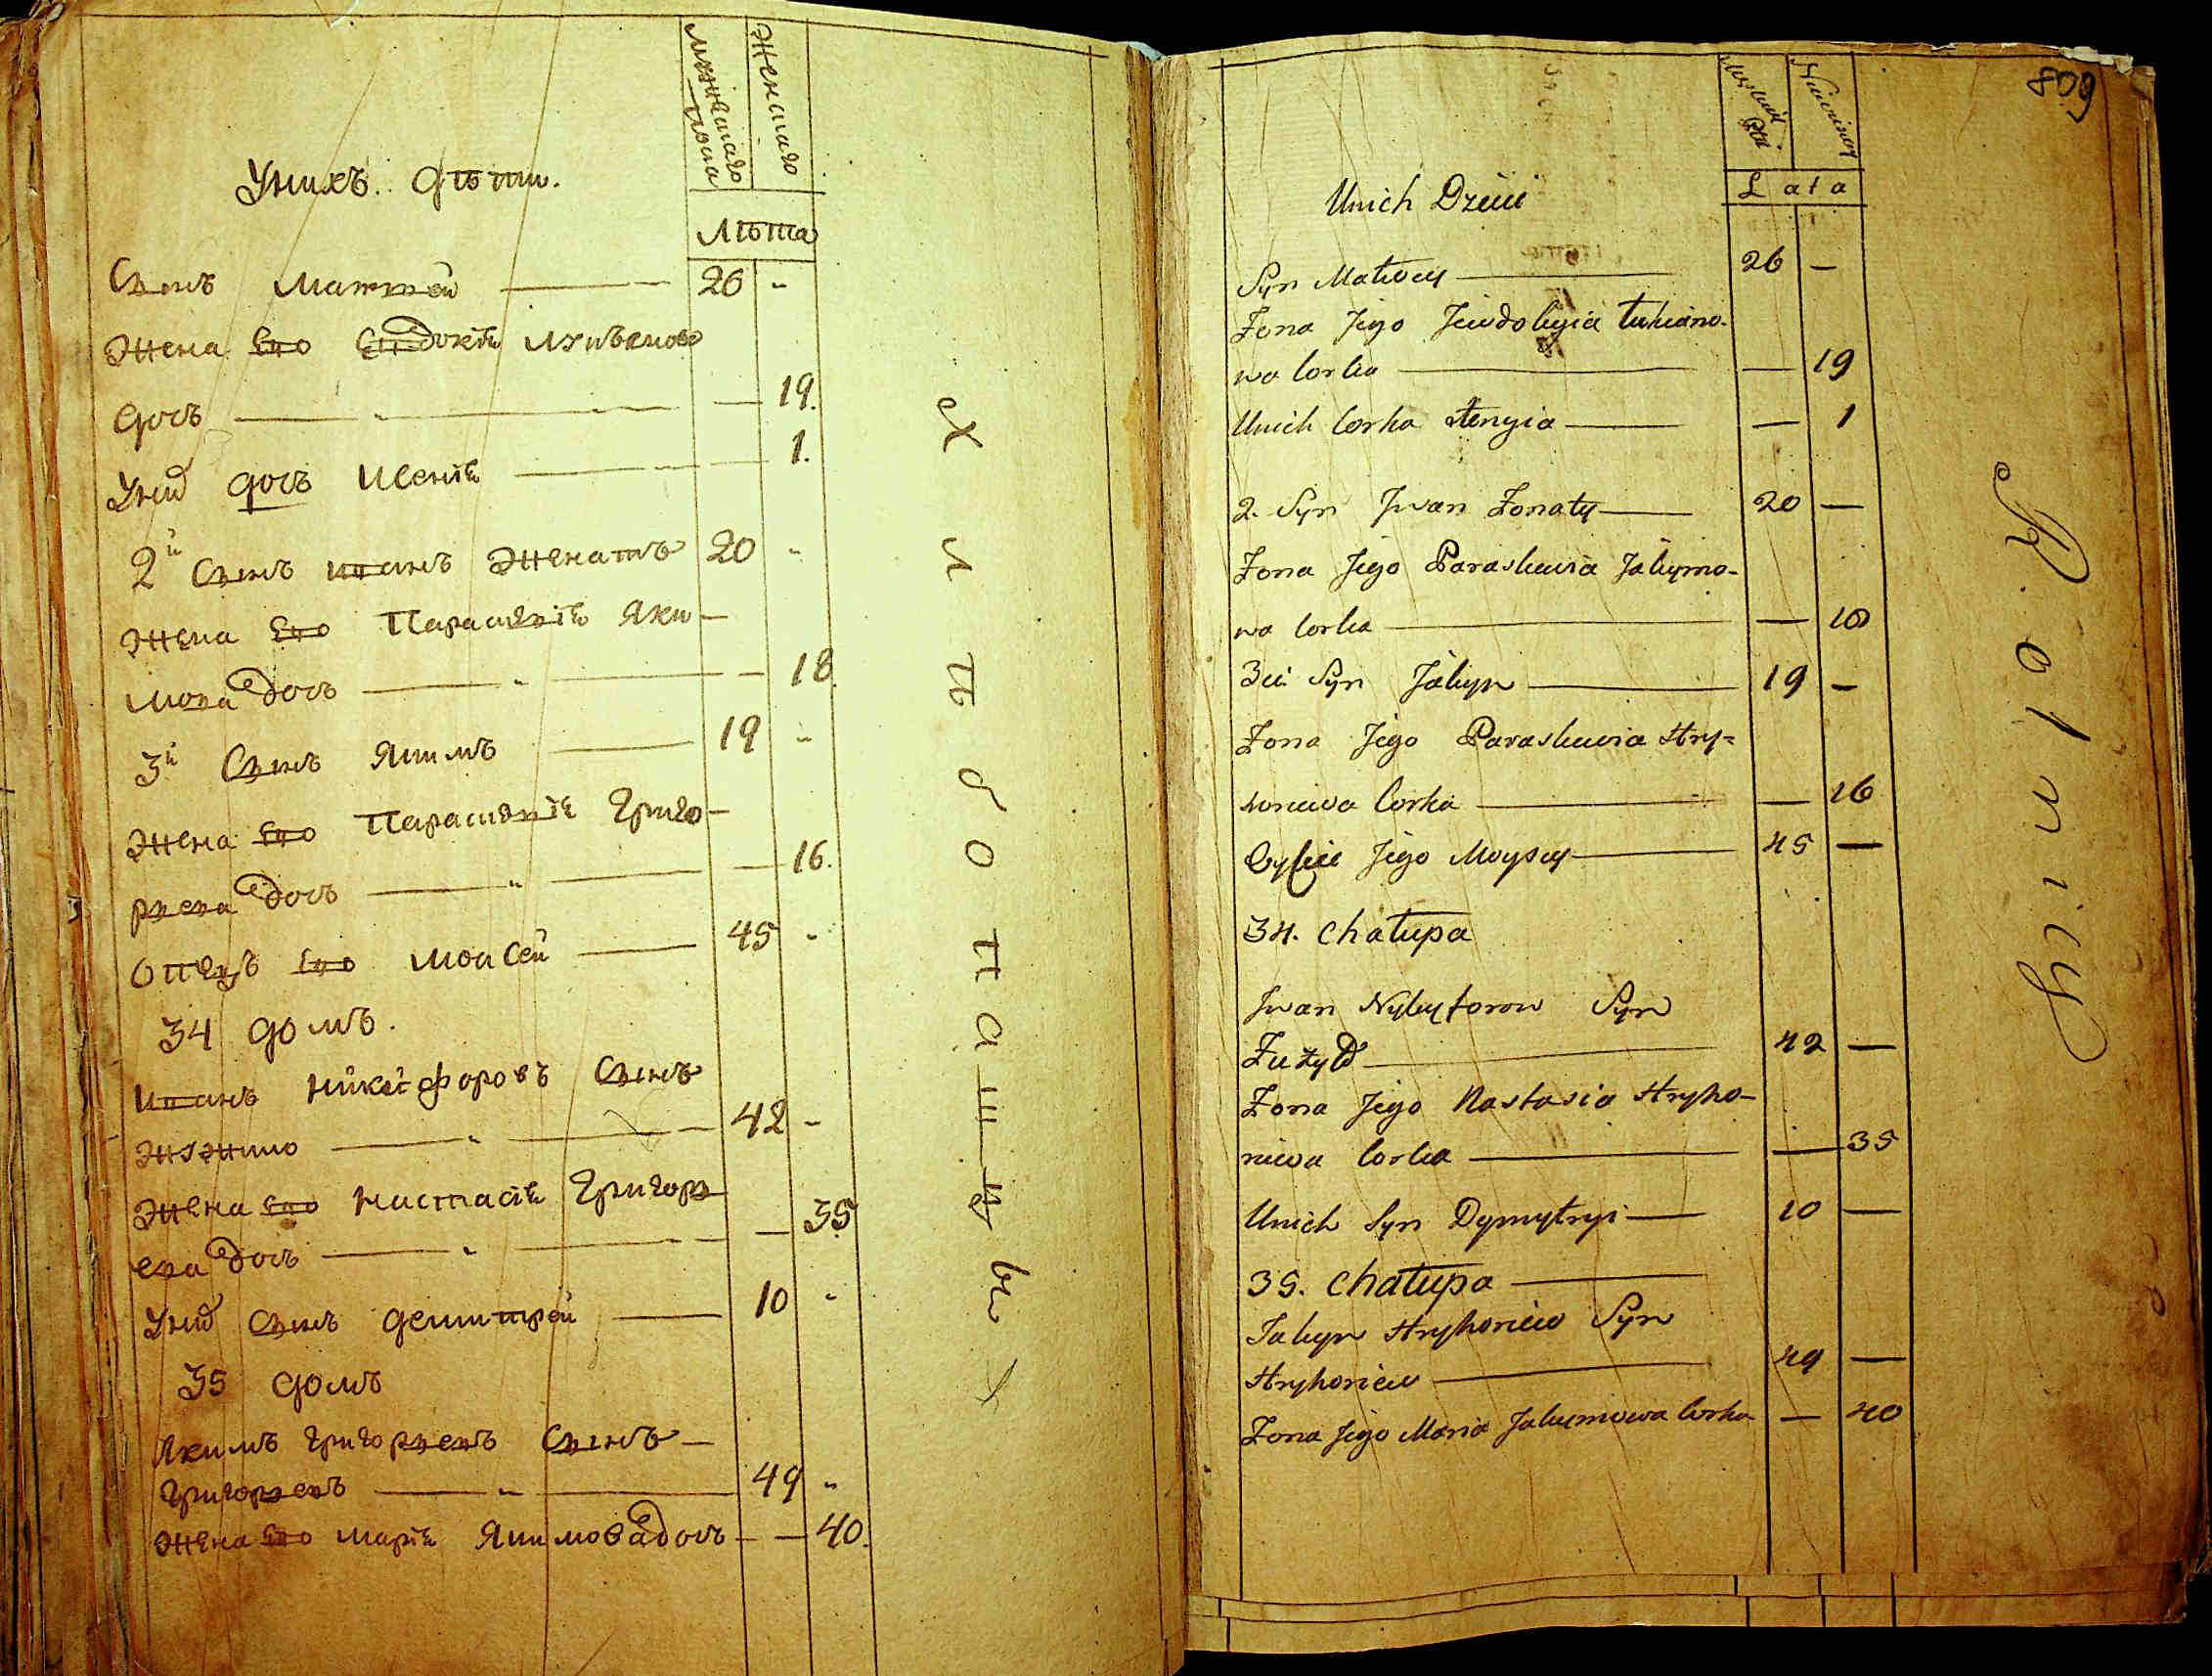 Мужескаго пола
Женскаго
У нихъ дѣти.
Лѣта
Сынъ Матвей — 26 -
Жена Его Евдокія Лукьянова
дочь — — 19.
У них дочь Ксенія — — 1.
2й Сынъ Иванъ Женатъ 20 -
Жена Его Параскевія Яки-
мова дочь — — 18
3й Сынъ Якимъ — 19 -
Жена Его Параскевія Григо-
рьева дочь — — 16.
Отецъ Его Моисей — 45 -
34 домъ.
Иванъ Никифоровъ Сынъ
— 42 -
Жена Его Настасія Григорь-
ева дочь — — 35
У них Сынъ Демитрей — 10 -
35 домъ
Якимъ Григорьевъ Сынъ —
Григорьевъ — 49 -
Жена Его Марія Якимова дочь — — 40.
хлѣбопашцы
809
Męskiej Płci
Niewieściej
Lata
Unich Dzieci
Syn Matwey — 26 —
Żona Jego Jewdokyia Łukiano-
wa Corka — — 19
Unich Corka Xenyia — — 1
2. Syn Jwan Żonaty — 20 —
Żona Jego Paraskewia Jakymo-
wa Corka — — 18
3ci Syn Jakym — 19 —
Żona Jego Paraskewia Hry-
horiewa Corka — — 16
Oyciec Jego Moysey — 45 —
34. Chałupa
Jwan Nykyforow Syn
— 42 —
Żona Jego Nastasia Hryho-
riewa Corka — — 35
Unich Syn Dymytryi — 10 —
35. Chałupa —
Jakym Hryhoriew Syn
Hryhoriew — 49 —
Żona Jego Maria Jakymowa Corka — — 40
Rolnicy